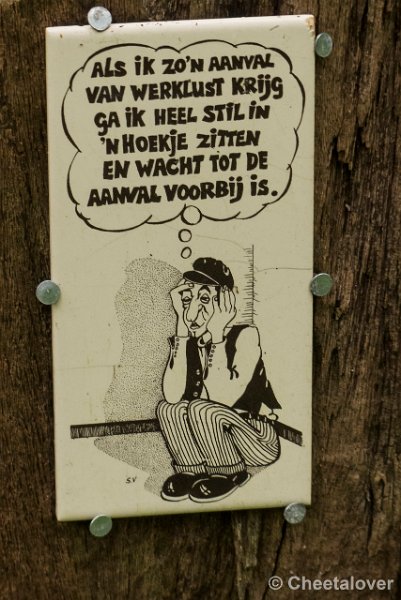 ALS IK ZO'N AANVAL
VAN WERKLUST KRIJG
GA IK HEEL STIL IN
'N HOEKJE ZITTEN
EN WACHT TOT DE
AANVAL VOORBIJ IS.
S.V
© Cheetalover